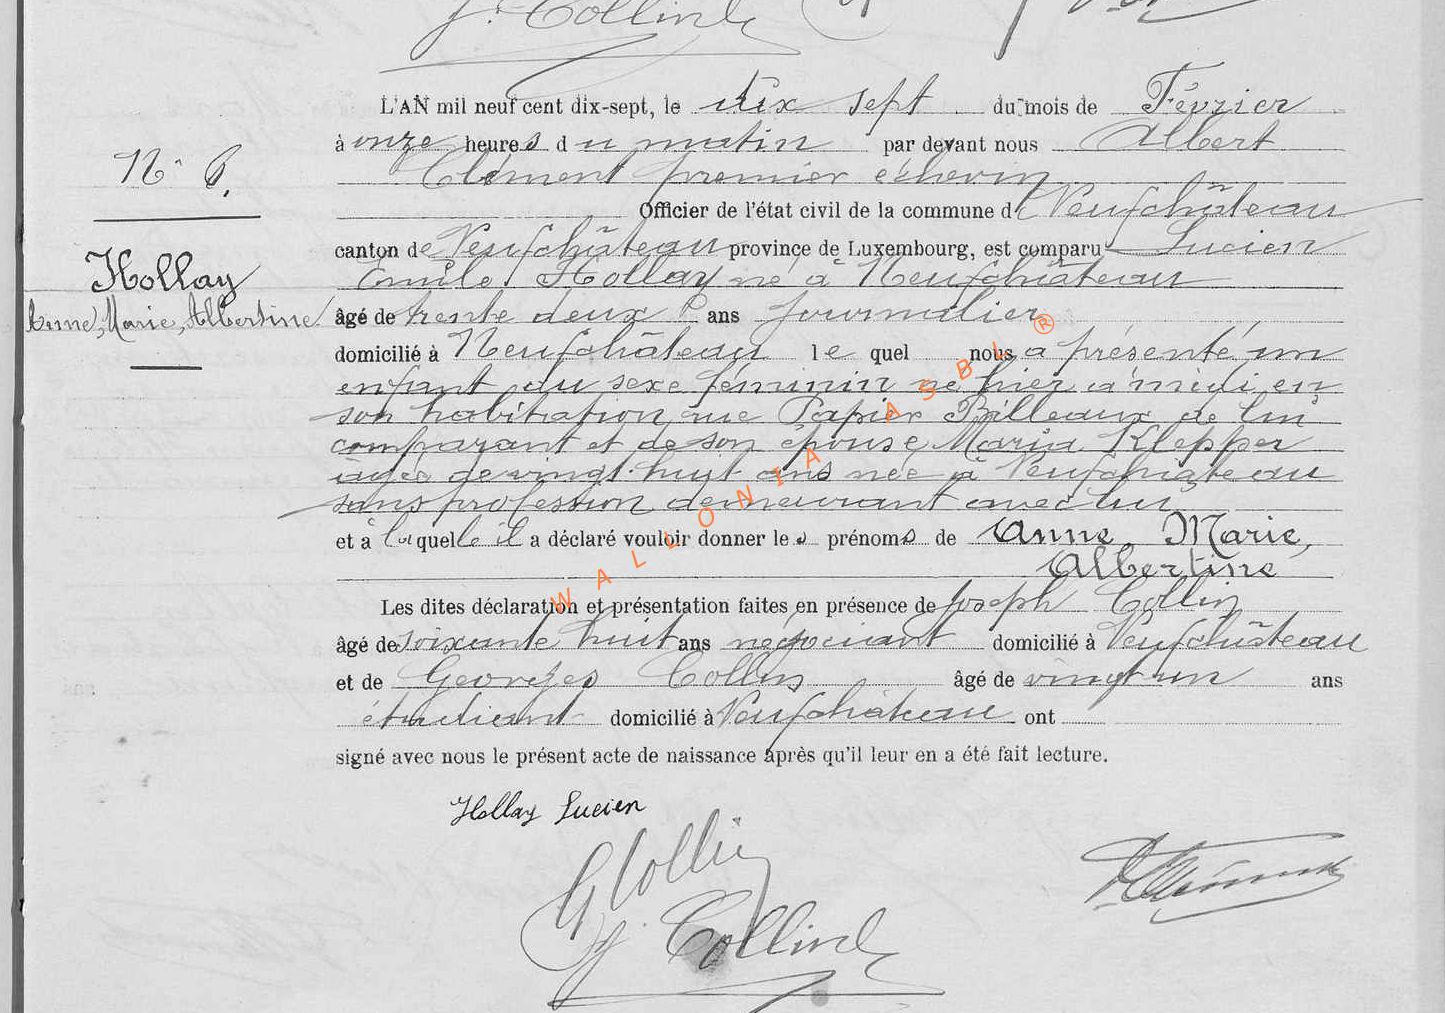 J. Collin
L'AN mil neuf cent dix-sept, le dix sept du mois de Février
à onze heures du matin par devant nous Albert
Clément premier échevin
Officier de l'état civil de la commune de Neufchâteau
canton de Neufchâteau province de Luxembourg, est comparu Lucien
Emile Hollay né à Neufchâteau
âgé de trente deux ans journalier
domicilié à Neufchâteau le quel nous a présenté un
enfant du sexe féminin né hier à midi en
son habitation rue Papier Billeaux de lui
comparant et de son épouse Maria Klepper
âgée de vingt huit ans née à Neufchâteau
sans profession demeurant avec lui
et à laquelle il a déclaré vouloir donner les prénoms de Anne, Marie,
Albertine
Les dites déclaration et présentation faites en présence de Joseph Collin
âgé de soixante huit ans négociant domicilié à Neufchâteau
et de Georges Collin âgé de vingt un ans
étudiant domicilié à Neufchâteau ont
signé avec nous le présent acte de naissance après qu'il leur en a été fait lecture.
N° 6.
Hollay
Anne, Marie, Albertine
Hollay Lucien
G Collin
J. Collin
A Clément
WALLONIA ASBL ®